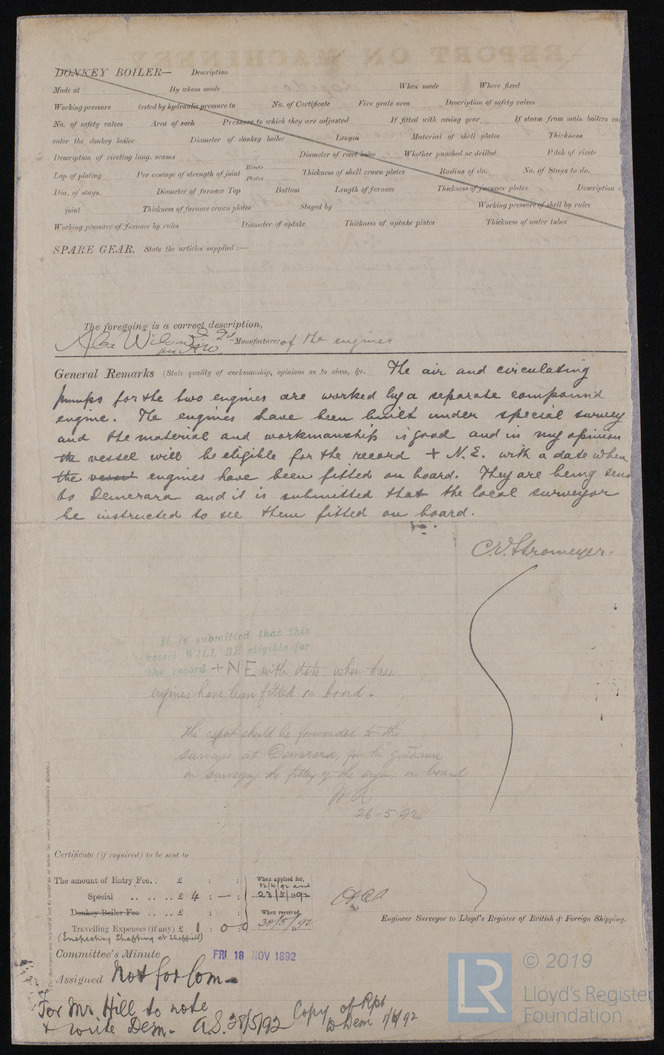 DONKEY BOILER— Description
Made at By whom made When made Where fixed
Working pressure tested by hydraulic pressure to No. of Certificate Fire grate area Description of safety valves
No. of safety valves Area of each Pressure to which they are adjusted If fitted with easing gear If steam from main boilers can
enter the donkey boiler Diameter of donkey boiler Length Material of shell plates Thickness
Description of riveting long. seams Diameter of rivet holes Whether punched or drilled Pitch of rivets
Lap of plating Per centage of strength of joint Rivets Plates Thickness of shell crown plates Radius of do. No. of Stays to do.
Dia. of stays. Diameter of furnace Top Bottom Length of furnace Thickness of furnace plates Description o
joint Thickness of furnace crown plates Stayed by Working pressure of shell by rules
Working pressure of furnace by rules Diameter of uptake Thickness of uptake plates Thickness of water tubes
SPARE GEAR. State the articles supplied:—
The foregoing is a correct description,
Alex Wilson & Co Ld Manufacturer of the engines
General Remarks (State quality of workmanship, opinions as to class, &c. The air and circulating
pumps for the two engines are worked by a separate compound
engine. The engines have been built under special survey
and the material and workmanship is good and in my opinion
the vessel will be eligible for the record + N.E. with a date when
the vessel engines have been fitted on board. They are being sent
to Demerara and it is submitted that the local surveyor
be instructed to see them fitted on board.
C.E. Stromeyer.
It is submitted that this
vessel WILL BE eligible for
the record + NE with date when these
engines have been fitted on board.
The report should be forwarded to the
surveyor at Demerara, for his guidance
in surveying the fitting of the engines on board
26-5-92
Certificate (if required) to be sent to
The amount of Entry Fee.. £ : : When applied for,
Special .. .. .. £ 4 : — : 23/5/92
Donkey Boiler Fee .. .. .. £ : : When received,
Travelling Expenses (if any) £ 1 : 0 : 0 30/5/92
(Inspecting Shafting at Sheffield)
Engineer Surveyor to Lloyd's Register of British & Foreign Shipping.
Committee's Minute FRI 18 NOV 1892
Assigned Not for Com-
For Mr Hill to note
& write Dem- A.S. 28/5/92 Copy of Rpt
to Dem 1/6/92
LR © 2019
Lloyd's Register
Foundation